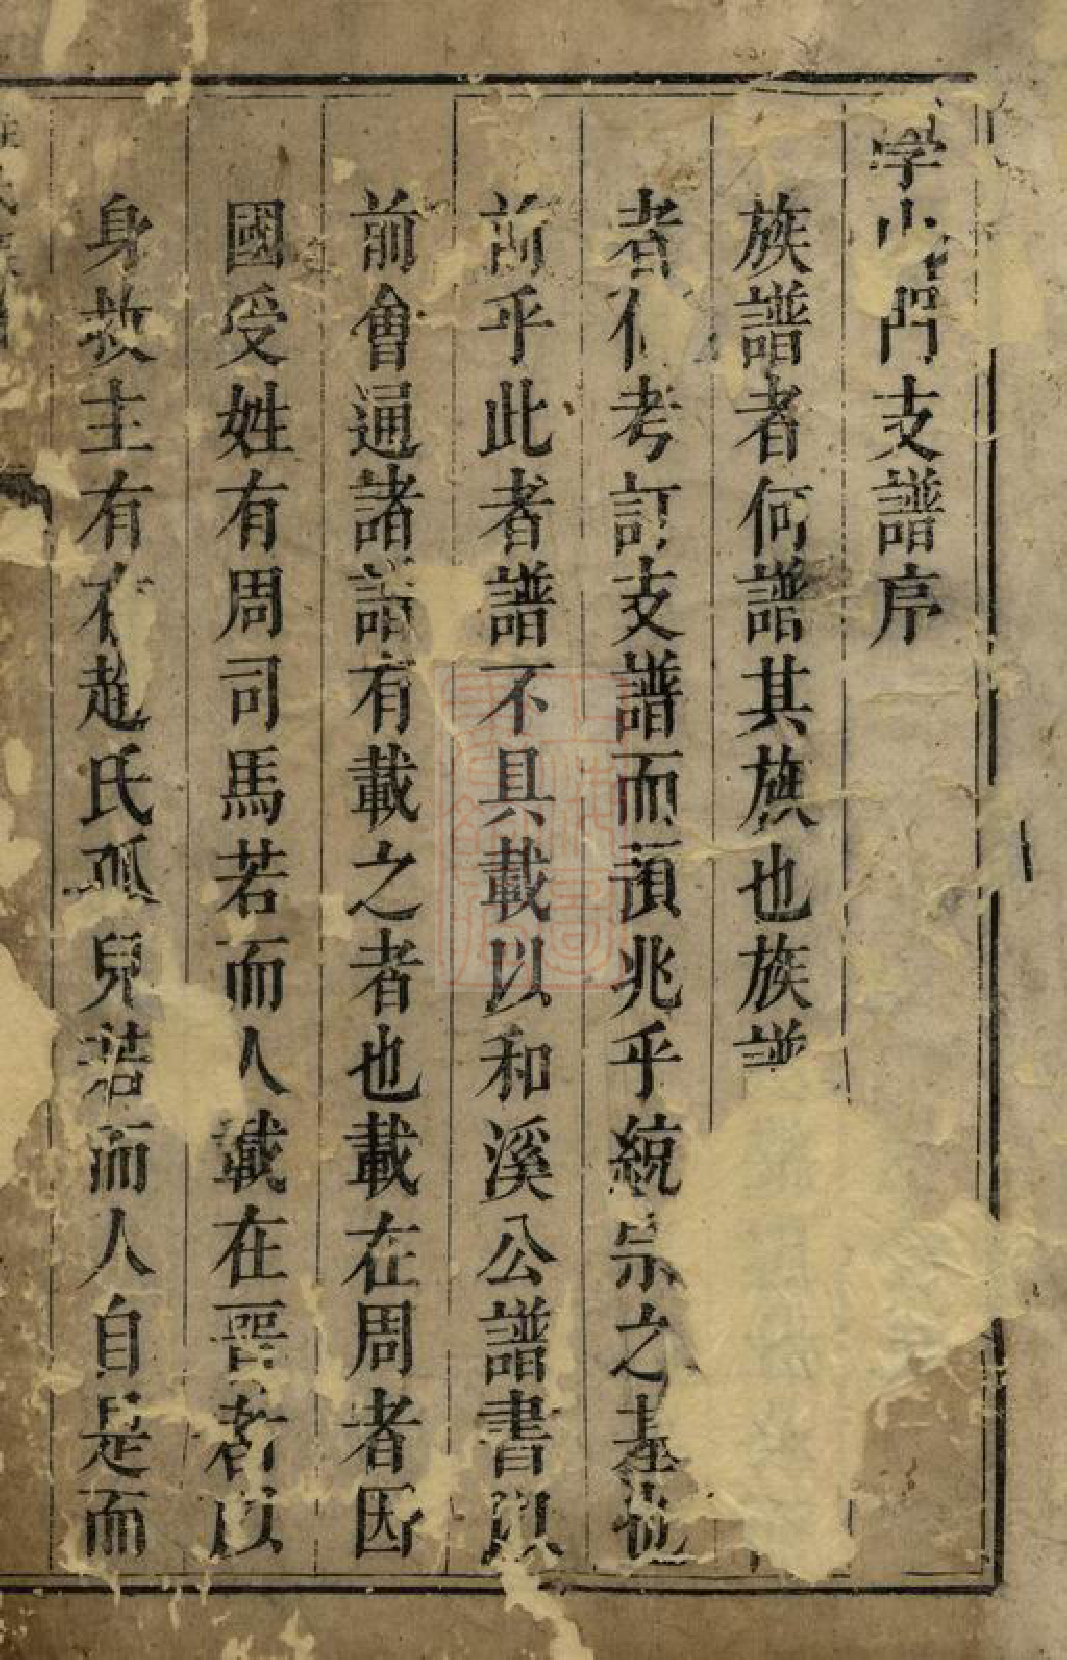 學山門支譜序
族譜者何譜其族也族譜
者何考訂支譜而預兆乎統宗之基也
前乎此者譜不具載以和溪公譜書以
前會通諸譜有載之者也載在周者因
國受姓有周司馬若而人載在晉者以
身救主有存趙氏孤兒若而人自是而